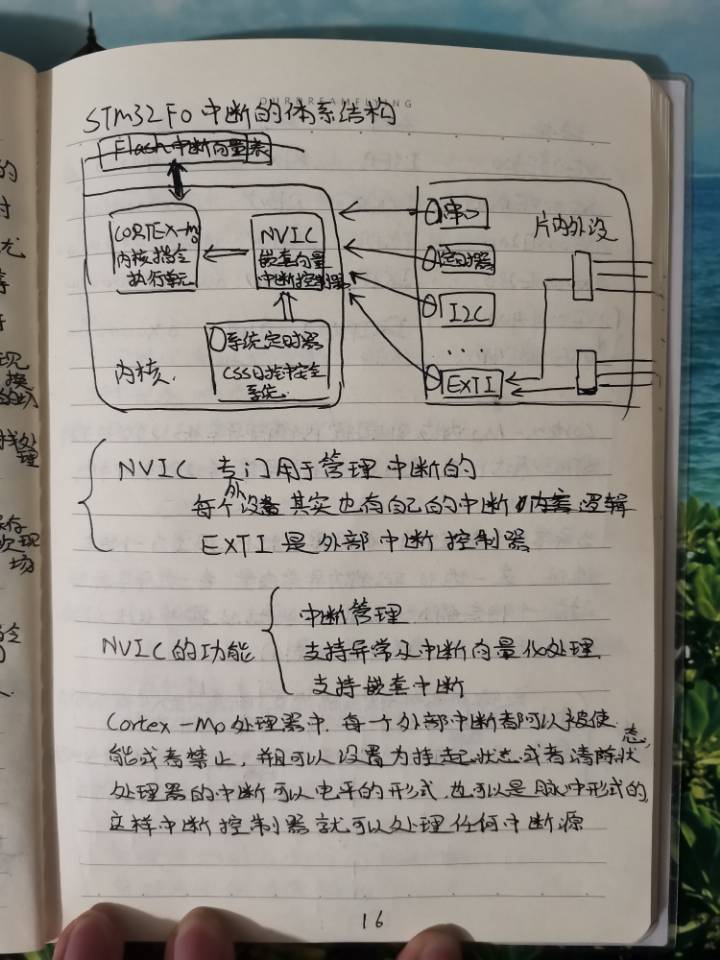 OURDREAMFLYING
STM32F0 中断的体系结构
Flash 中断向量表
CORTEX-M0
内核指令
执行单元
NVIC
嵌套向量
中断控制器
系统定时器
CSS时钟安全
系统
内核.
串口
定时器
I2C
...
EXTI
片内外设
NVIC 专门用于管理中断的
每个外设其实也有自己的中断逻辑
EXTI 是外部中断控制器
NVIC的功能
中断管理
支持异常及中断向量化处理
支持嵌套中断
Cortex-M0处理器中，每一个外部中断都可以被使
能或者禁止，并且可以设置为挂起状态或者清除状
态，
处理器的中断可以电平的形式，也可以是脉冲形式的，
这样中断控制器就可以处理任何中断源
16
的
时
尤
现
换
的场
处
理
保存
现
场